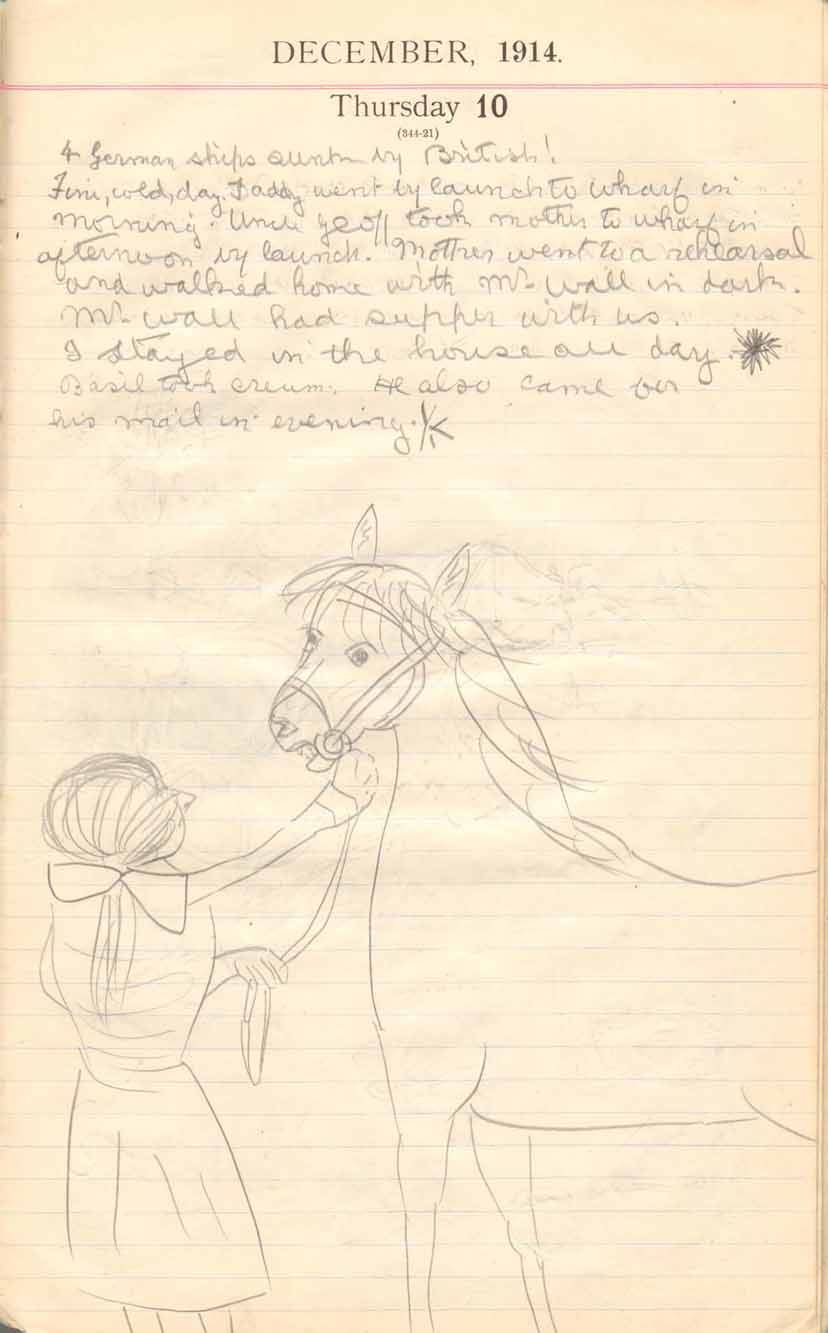 DECEMBER, 1914.
Thursday 10
(344-21)
4 German ships sunk by British!
Fine, cold, day. Daddy went by launch to wharf in
morning. Uncle Geoff took mother to wharf in
afternoon by launch. Mother went to a rehearsal
and walked home with Mr. Wall in dark.
Mr. Wall had supper with us.
I stayed in the house all day.
Basil took cream. He also came for
his mail in evening.